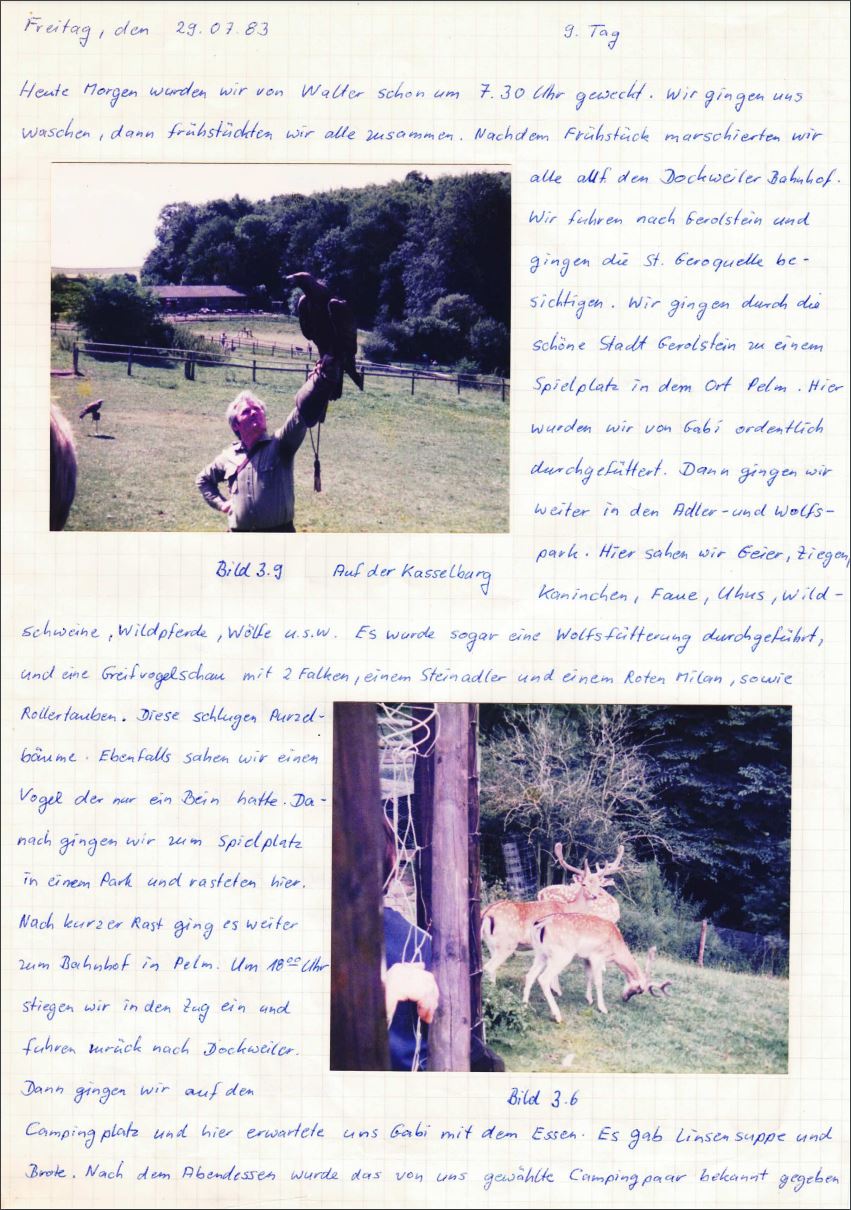 Freitag, den 29.07.83 9. Tag
Heute Morgen wurden wir von Walter schon um 7.30 Uhr geweckt. Wir gingen uns
waschen, dann frühstückten wir alle zusammen. Nachdem Frühstück marschierten wir
alle auf den Dockweiler Bahnhof.
Wir fuhren nach Gerolstein und
gingen die St. Geroquelle be-
sichtigen. Wir gingen durch die
schöne Stadt Gerolstein zu einem
Spielplatz in dem Ort Pelm. Hier
wurden wir von Gabi ordentlich
durchgefüttert. Dann gingen wir
weiter in den Adler- und Wolfs-
park. Hier sahen wir Geier, Ziegen,
Kaninchen, Faue, Uhus, Wild-
schweine, Wildpferde, Wölfe u.s.w. Es wurde sogar eine Wolfsfütterung durchgeführt,
und eine Greifvogelschau mit 2 Falken, einem Steinadler und einem Roten Milan, sowie
Rollertauben. Diese schlugen Purzel-
bäume. Ebenfalls sahen wir einen
Vogel der nur ein Bein hatte. Da-
nach gingen wir zum Spielplatz
in einem Park und rasteten hier.
Nach kurzer Rast ging es weiter
zum Bahnhof in Pelm. Um 18⁰⁰ Uhr
stiegen wir in den Zug ein und
fuhren zurück nach Dockweiler.
Dann gingen wir auf den
Campingplatz und hier erwartete uns Gabi mit dem Essen. Es gab Linsensuppe und
Brote. Nach dem Abendessen wurde das von uns gewählte Campingpaar bekannt gegeben
Bild 3.9 Auf der Kasselburg
Bild 3.6